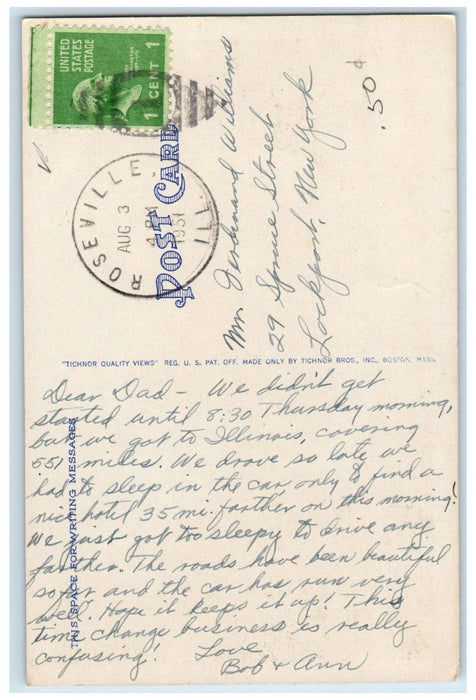 UNITED
STATES
POSTAGE
1 CENT 1
ROSEVILLE, ILL.
AUG 3
4 PM
1951
POST CARD
.50¢
Mr. Ferdinand Williams
29 Spruce Street
Lockport, New York
"TICHNOR QUALITY VIEWS" REG. U. S. PAT. OFF. MADE ONLY BY TICHNOR BROS., INC., BOSTON, MASS.
THIS SPACE FOR WRITING MESSAGES
Dear Dad - We didn't get
started until 8:30 Thursday morning,
but we got to Illinois, covering
551 miles. We drove so late we
had to sleep in the car, only to find a
nice hotel 35 mi. farther on this morning!
We just got too sleepy to drive any
farther. The roads have been beautiful
so far and the car has run very
well. Hope it keeps it up! This
time change business is really
confusing! Love
Bob & Ann